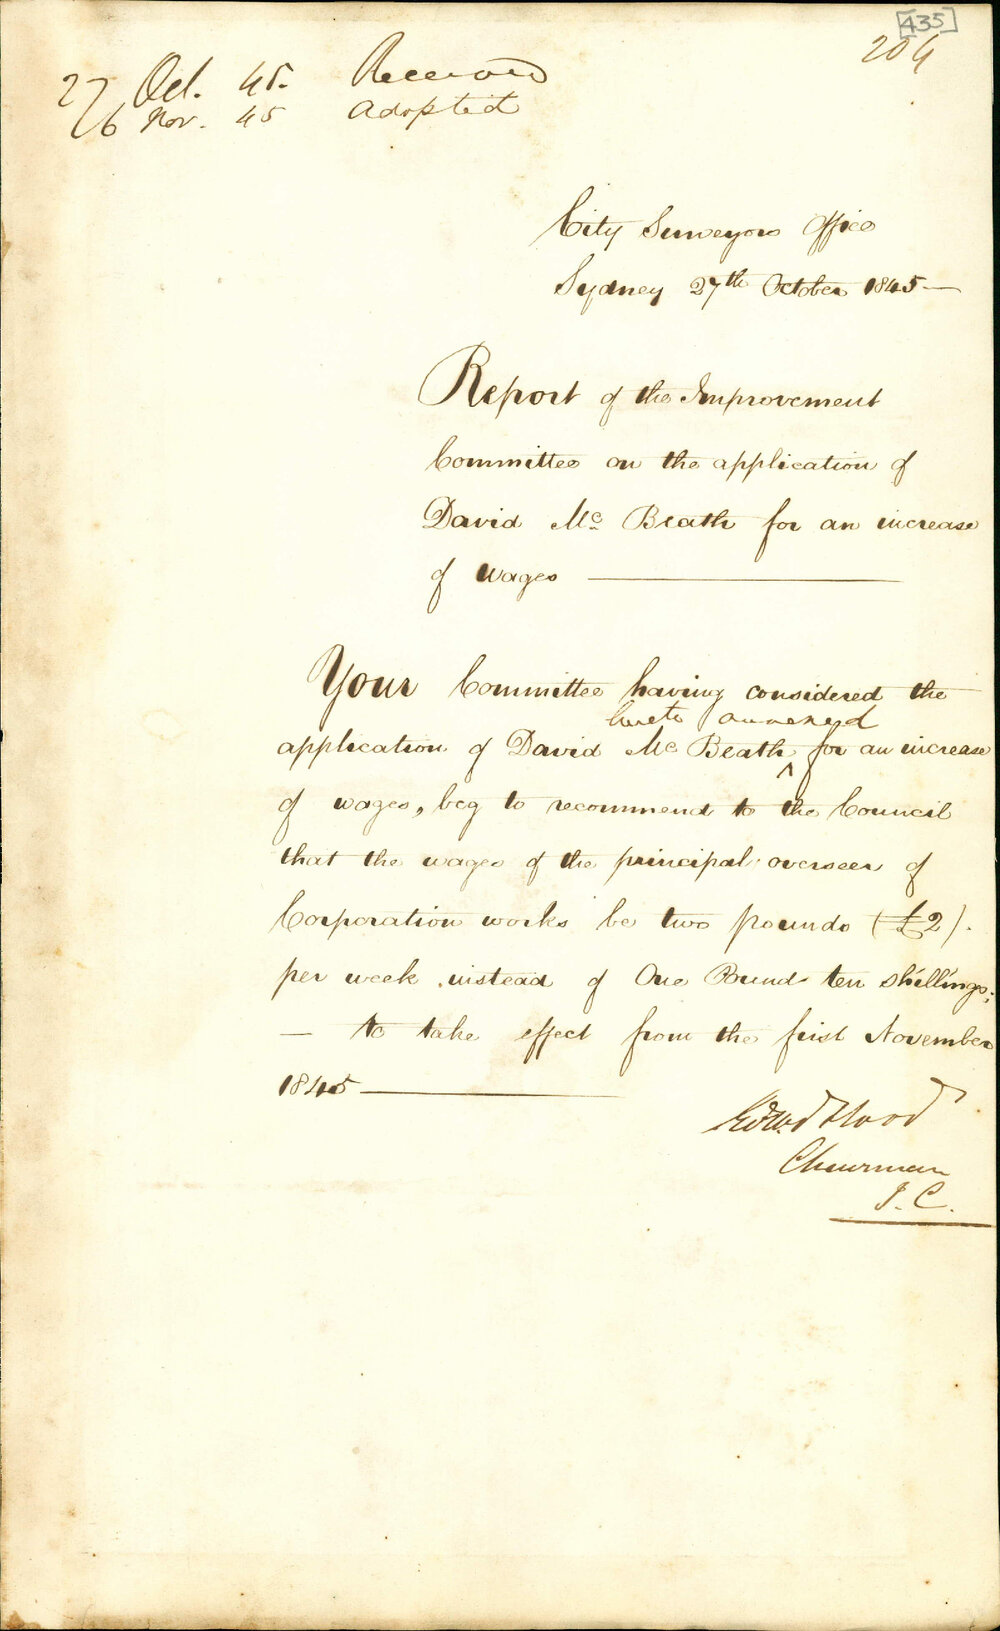 [435]
204
27 Oct. 45. Received
26 Nov. 45 Adopted
City Surveyors Office
Sydney 27th October 1845 —
Report of the Improvement
Committee on the application of
David Mc Beath for an increase
of wages —
Your Committee having considered the
hereto annexed
application of David Mc Beath ^ for an increase
of wages, beg to recommend to the Council
that the wages of the principal overseer of
Corporation works be two pounds (£2).
per week instead of One Pound ten shillings;
— to take effect from the first November
1845 —
Edwd Flood
Chairman
I. C.